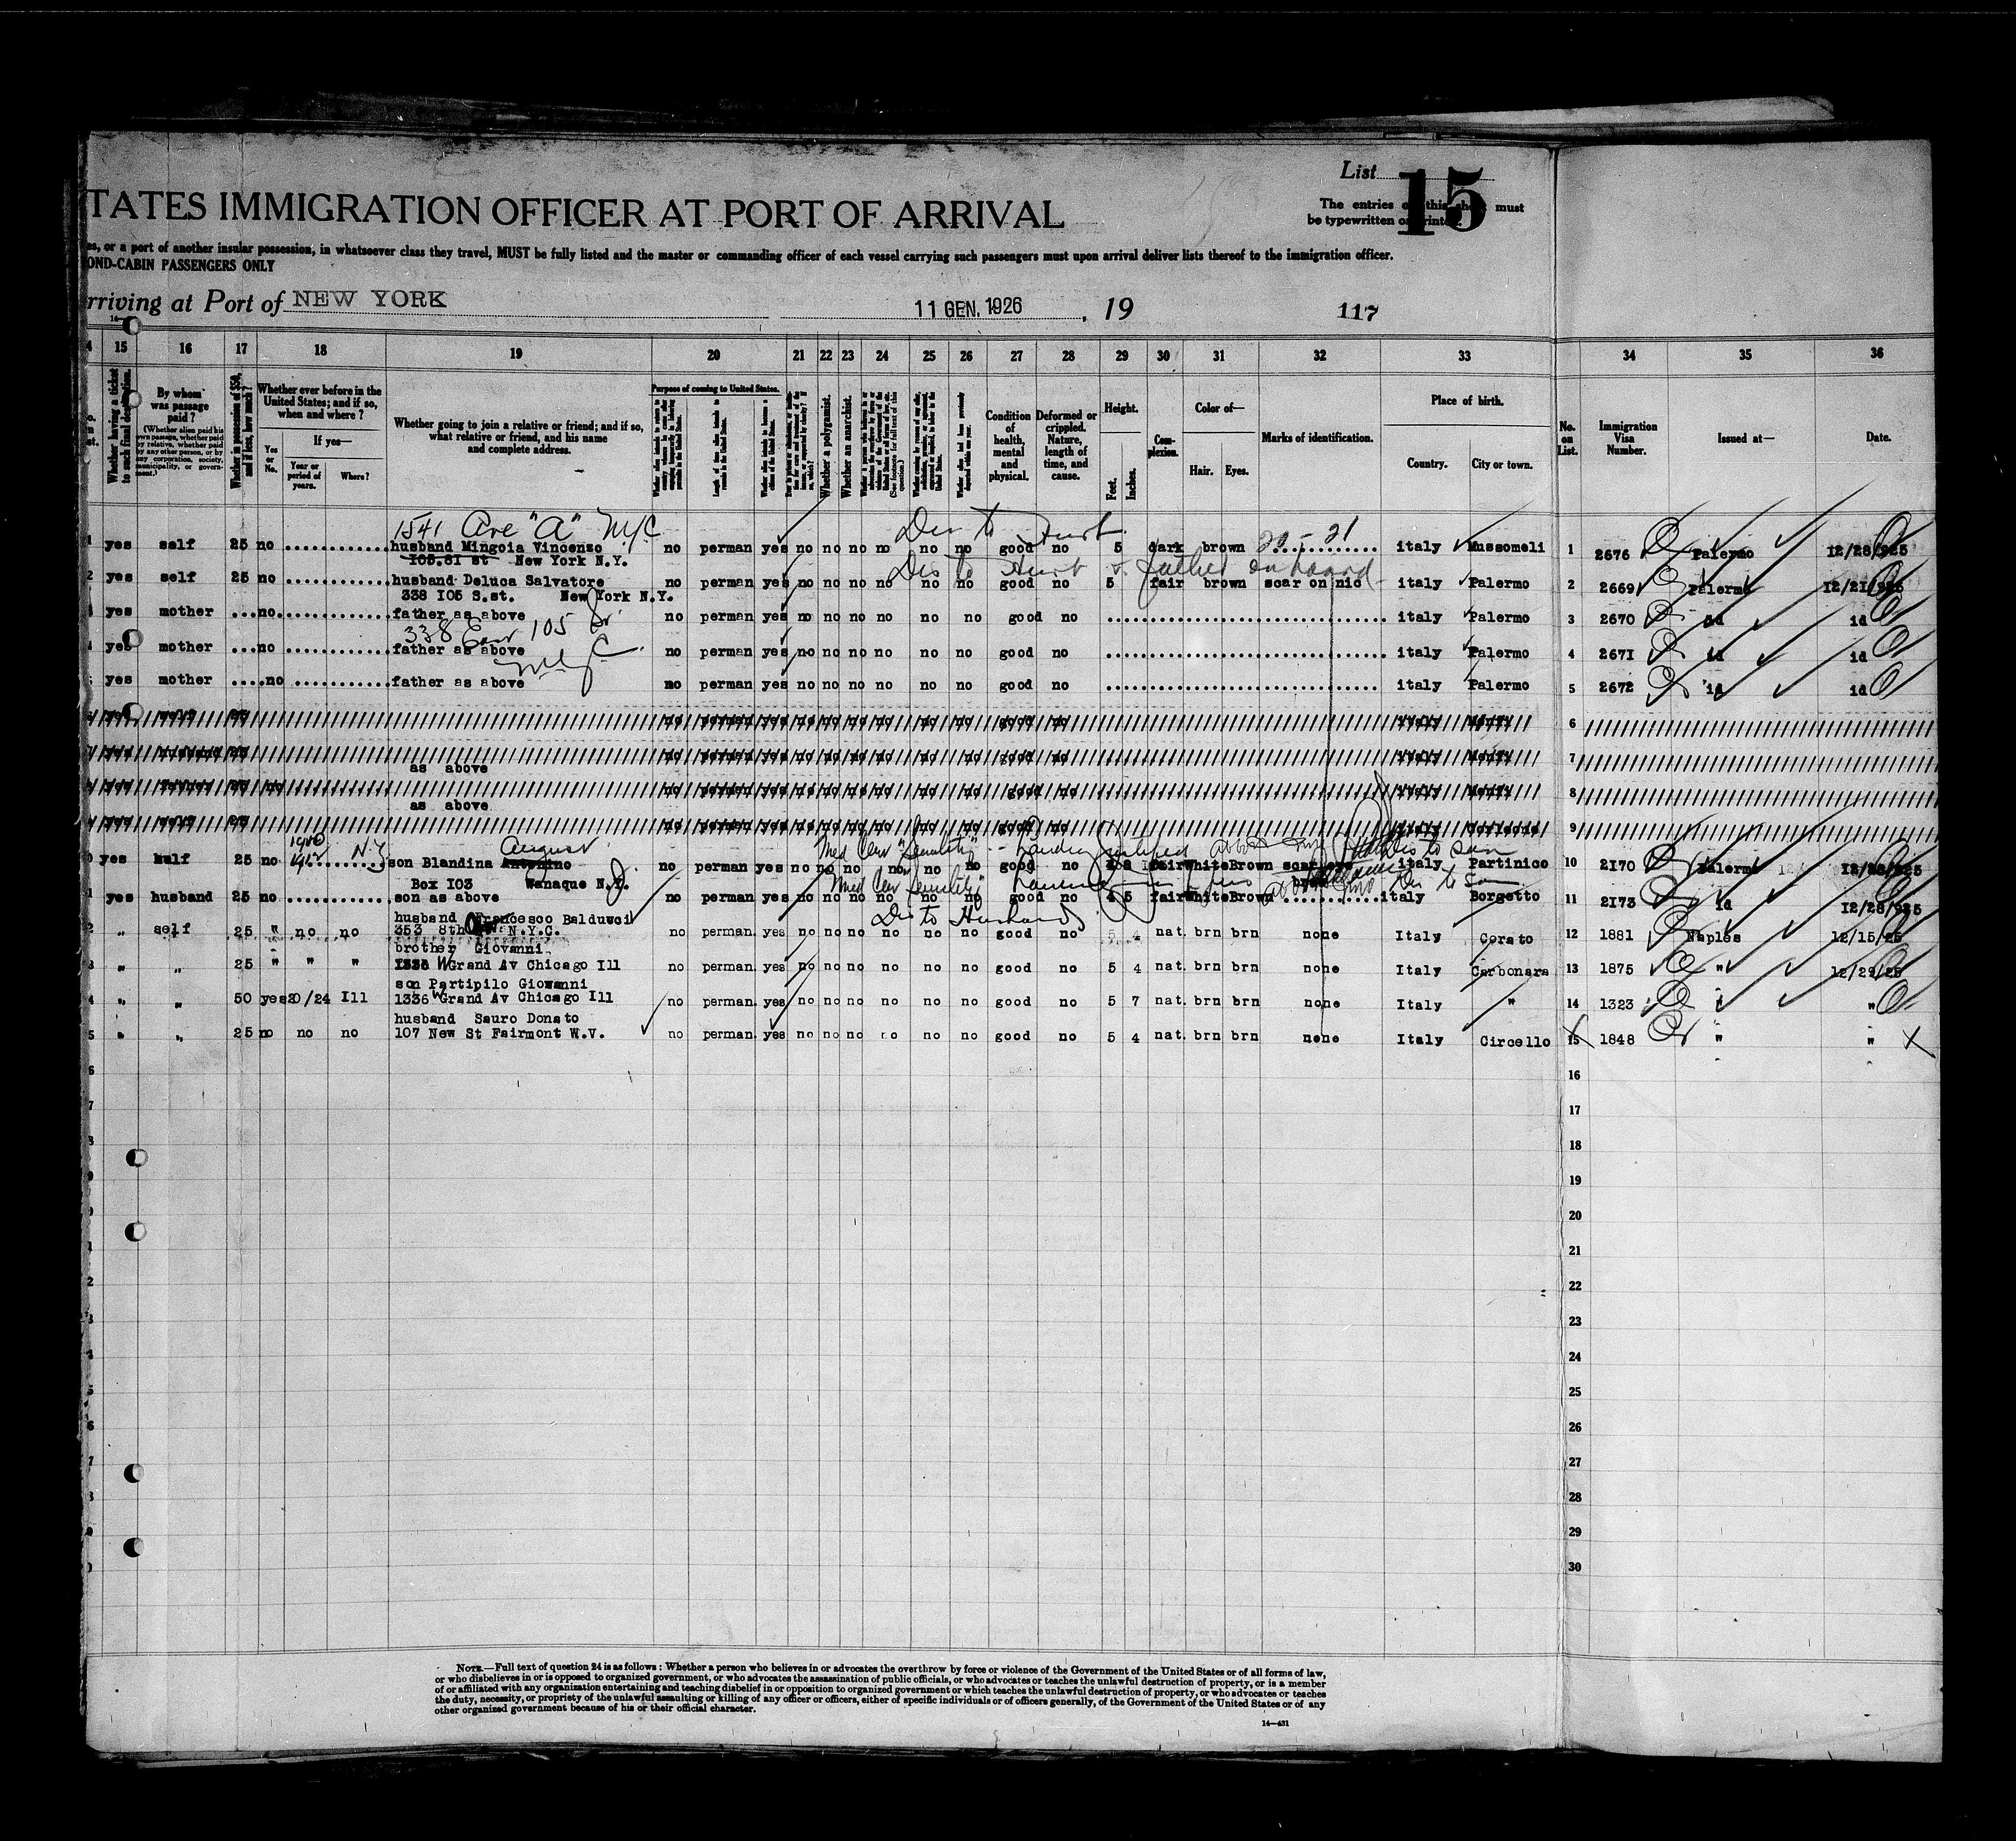 List 15
TATES IMMIGRATION OFFICER AT PORT OF ARRIVAL
The entries on this sheet must
be typewritten or printed
es, or a port of another insular possession, in whatsoever class they travel, MUST be fully listed and the master or commanding officer of each vessel carrying such passengers must upon arrival deliver lists thereof to the immigration officer.
OND-CABIN PASSENGERS ONLY
rriving at Port of NEW YORK 11 GEN. 1926 , 19 117
15 16 17 18 19 20 21 22 23 24 25 26 27 28 29 30 31 32 33 34 35 36
Whether having a ticket to such final destination.
By whom was passage paid?
(Whether alien paid his own passage, whether paid by relative, whether paid by any other person, or by any corporation, society, municipality, or government.)
Whether in possession of $50, and if less, how much?
Whether ever before in the United States; and if so, when and where?
Yes or No.
If yes—
Year or period of years.
Where?
Whether going to join a relative or friend; and if so, what relative or friend, and his name and complete address.
Purpose of coming to United States.
Whether a polygamist.
Whether an anarchist.
Condition of health, mental and physical.
Deformed or crippled. Nature, length of time, and cause.
Height.
Feet. Inches.
Complexion.
Color of—
Hair. Eyes.
Marks of identification.
Place of birth.
Country. City or town.
No. on List.
Immigration Visa Number.
Issued at—
Date.
1541 Ave "A" NYC Dis to Husb
yes self 25 no husband Mingoia Vincenzo no perman yes no no no no no no good no 5 dark brown 20 - 21 italy Mussomeli 1 2676 Palermo 12/28/925
105.61 st New York N.Y. Dis to Husb & father on board
yes self 25 no husband Deluca Salvatore no perman yes no no no no no no good no 5 fair brown scar on nic italy Palermo 2 2669 Palermo 12/21/925
338 105 S.st. New York N.Y.
yes mother no father as above no perman yes no no no no no no good no italy Palermo 3 2670 id id
338 East 105 St
yes mother no father as above no perman yes no no no no no no good no italy Palermo 4 2671 id id
NYC
yes mother no father as above no perman yes no no no no no no good no italy Palermo 5 2672 id id
yes self 25 no perman yes no no no no no no good no italy Menfi 6
yes husband 25 no perman yes no no no no no no good no italy Menfi 7
as above
yes father 25 no no perman yes no no no no no no good no italy Menfi 8
as above
yes self 25 no perman yes no no no no no no good no italy 9
August
yes half 25 no N.Y son Blandina Antonino no perman yes no no no no no no good no 4 8 fair White Brown scar eye italy Partinico 10 2170 Palermo 12/28/925
Box 103 Wanaque N.J.
yes husband 25 no son as above no perman yes no no no no no no good no 4 5 fair White Brown italy Borgetto 11 2173 id 12/28/925
husband Francesco Balduwci Dis to Husband
" self 25 " no no 353 8th Av. N.Y.C. no perman. yes no no no no no no good no 5 4 nat. brn brn none Italy Corato 12 1881 Naples 12/15/25
brother Giovanni
" " 25 " " " 1336 W Grand Av Chicago Ill no perman. yes no no no no no no good no 5 4 nat. brn brn none Italy Carbonara 13 1875 " 12/29/25
son Partipilo Giovanni
" " 50 yes 20/24 Ill 1336 W Grand Av Chicago Ill no perman. yes no no no no no no good no 5 7 nat. brn brn none Italy " 14 1323 " "
husband Sauro Donato
" " 25 no no no 107 New St Fairmont W.V. no perman. yes no no no no no no good no 5 4 nat. brn brn none Italy Circello 15 1848 " "
16
17
18
19
20
21
22
23
24
25
26
27
28
29
30
NOTE.—Full text of question 24 is as follows: Whether a person who believes in or advocates the overthrow by force or violence of the Government of the United States or of all forms of law,
or who disbelieves in or is opposed to organized government, or who advocates the assassination of public officials, or who advocates or teaches the unlawful destruction of property, or is a member
of or affiliated with any organization entertaining and teaching disbelief in or opposition to organized government or which teaches the unlawful destruction of property, or who advocates or teaches
the duty, necessity, or propriety of the unlawful assaulting or killing of any officer or officers, either of specific individuals or of officers generally, of the Government of the United States or of any
other organized government because of his or their official character.
14—431